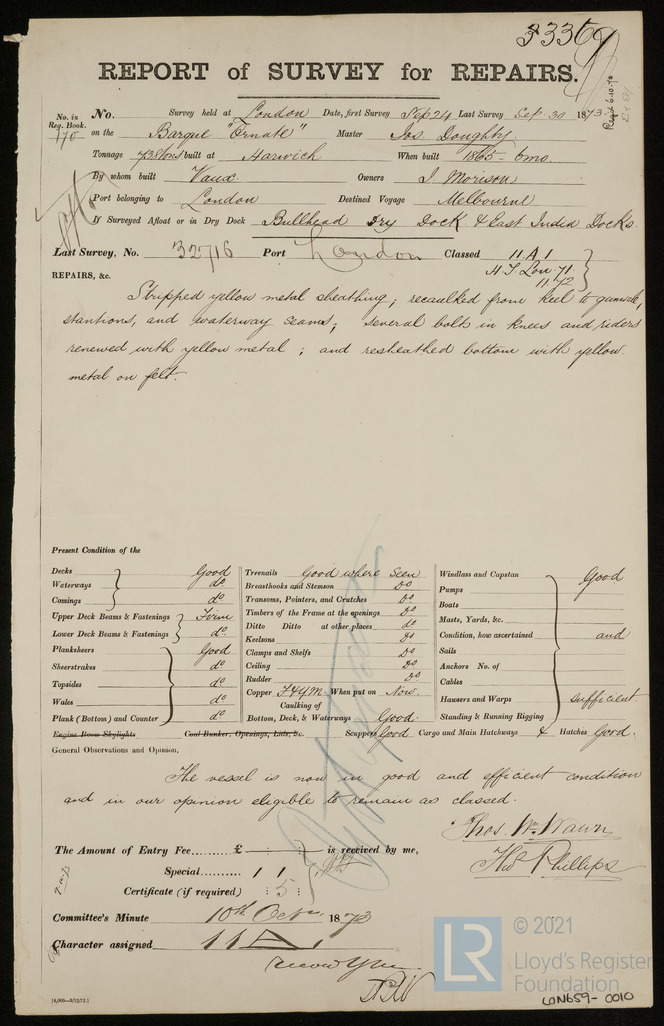 33369
REPORT of SURVEY for REPAIRS.
No. in Reg. Book. 170
No. Survey held at London Date, first Survey Sep 24 Last Survey Sep. 30 1873
on the Barque "Ornate" Master Jas. Doughty
Tonnage 738 tons built at Harwich When built 1865 - 6mo.
By whom built Vaux. Owners J. Morison
Port belonging to London Destined Voyage Melbourne
If Surveyed Afloat or in Dry Dock Bullhead Dry Dock & East India Docks.
Last Survey, No. 32716 Port London Classed 11.A.1
H.T. Lon. 71.
11.72
REPAIRS, &c.
Stripped yellow metal sheathing; recaulked from keel to gunwale,
stantions, and waterway seams; several bolts in knees and riders
renewed with yellow metal; and resheathed bottom with yellow
metal on felt.
Present Condition of the
Decks Good
Waterways do
Comings do
Upper Deck Beams & Fastenings Firm
Lower Deck Beams & Fastenings do
Planksheers Good
Sheerstrakes do
Topsides do
Wales do
Plank (Bottom) and Counter do
Treenails Good where seen
Breasthooks and Stemson Do
Transoms, Pointers, and Crutches Do
Timbers of the Frame at the openings Do
Ditto Ditto at other places Do
Keelsons Do
Clamps and Shelfs Do
Ceiling Do
Rudder Do
Copper F & Y.M. When put on Now.
Caulking of
Bottom, Deck, & Waterways Good.
Windlass and Capstan Good
Pumps
Boats
Masts, Yards, &c.
Condition, how ascertained and
Sails
Anchors No. of
Cables
Hawsers and Warps sufficient
Standing & Running Rigging
Engine Room Skylights Coal Bunker, Openings, Lids, &c. Scuppers Good Cargo and Main Hatchways & Hatches Good.
General Observations and Opinion,
The vessel is now in good and efficient condition
and in our opinion eligible to remain as classed.
Thos. Wm Wawn
Thos Phillips
The Amount of Entry Fee £ : : is received by me,
Special 1 1
Certificate (if required) : 5 :
Committee's Minute 10th Octr 1873
Character assigned 11 A 1
[4,000—9/12/72.]
© 2021
LR
Lloyd's Register
Foundation
LON659-0010